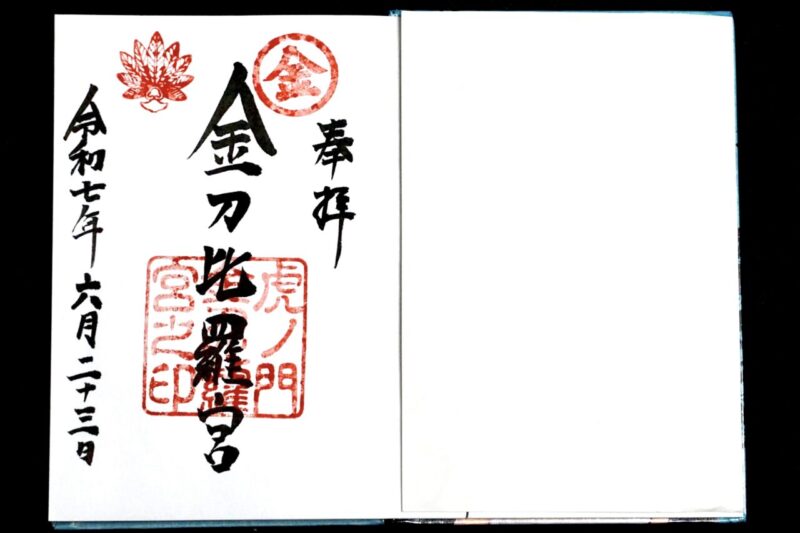 奉拝
金
金刀比羅宮
虎ノ門
宮之印
令和七年六月二十三日